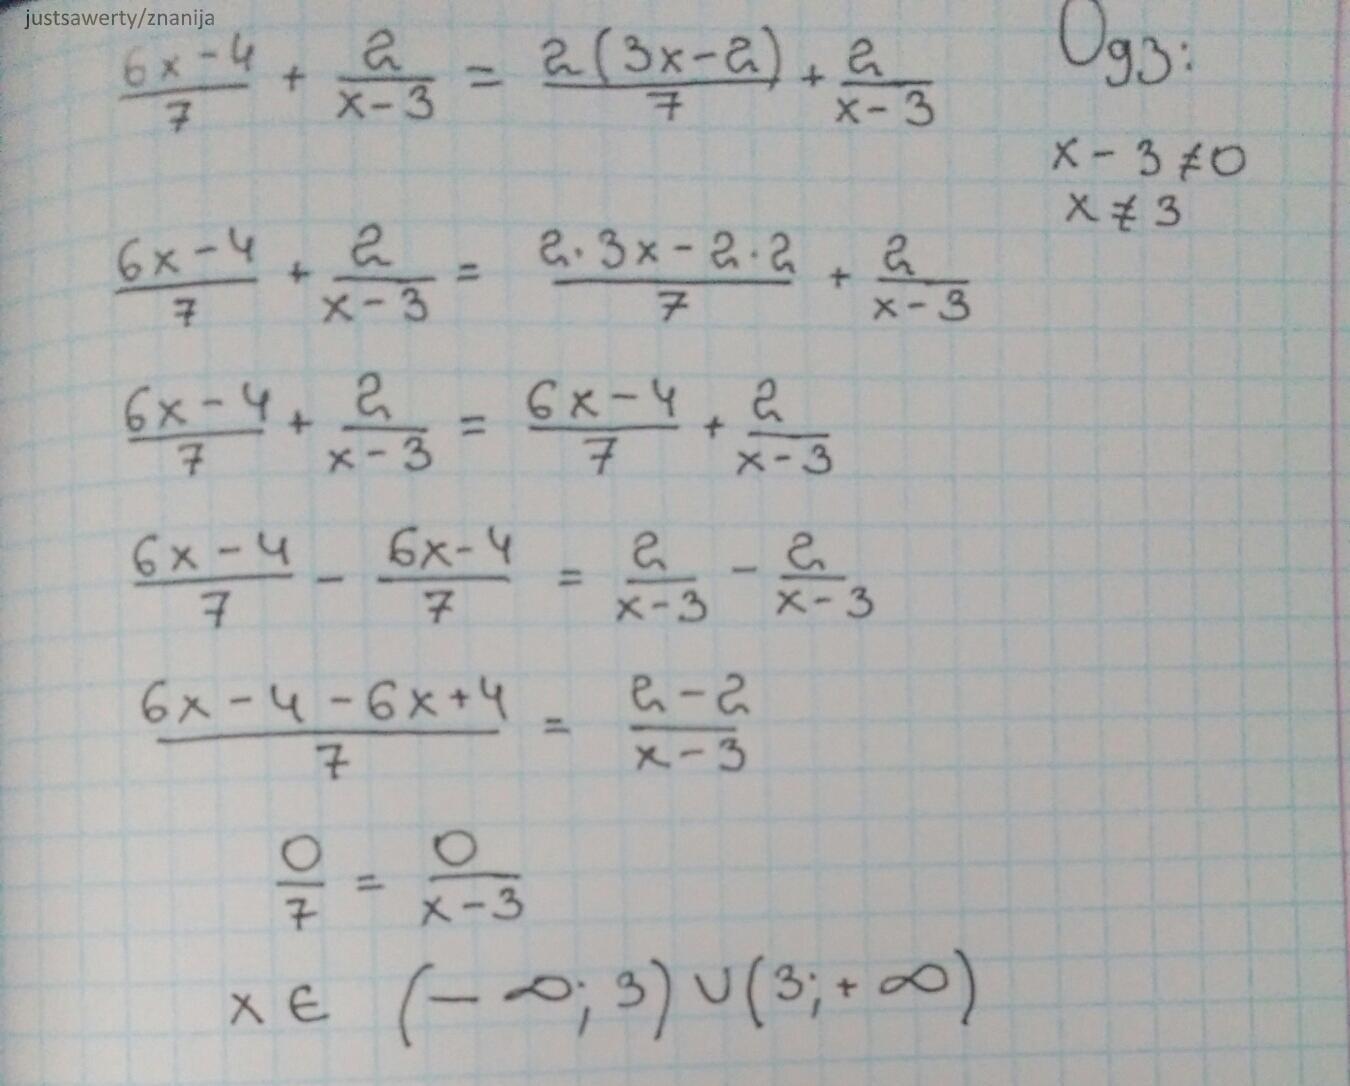 justsawerty/znanija
(6x-4)/7 + 2/(x-3) = 2(3x-2)/7 + 2/(x-3)
Одз:
x-3≠0
x≠3
(6x-4)/7 + 2/(x-3) = (2·3x-2·2)/7 + 2/(x-3)
(6x-4)/7 + 2/(x-3) = (6x-4)/7 + 2/(x-3)
(6x-4)/7 - (6x-4)/7 = 2/(x-3) - 2/(x-3)
(6x-4-6x+4)/7 = (2-2)/(x-3)
0/7 = 0/(x-3)
x ∈ (-∞; 3) ∪ (3; +∞)